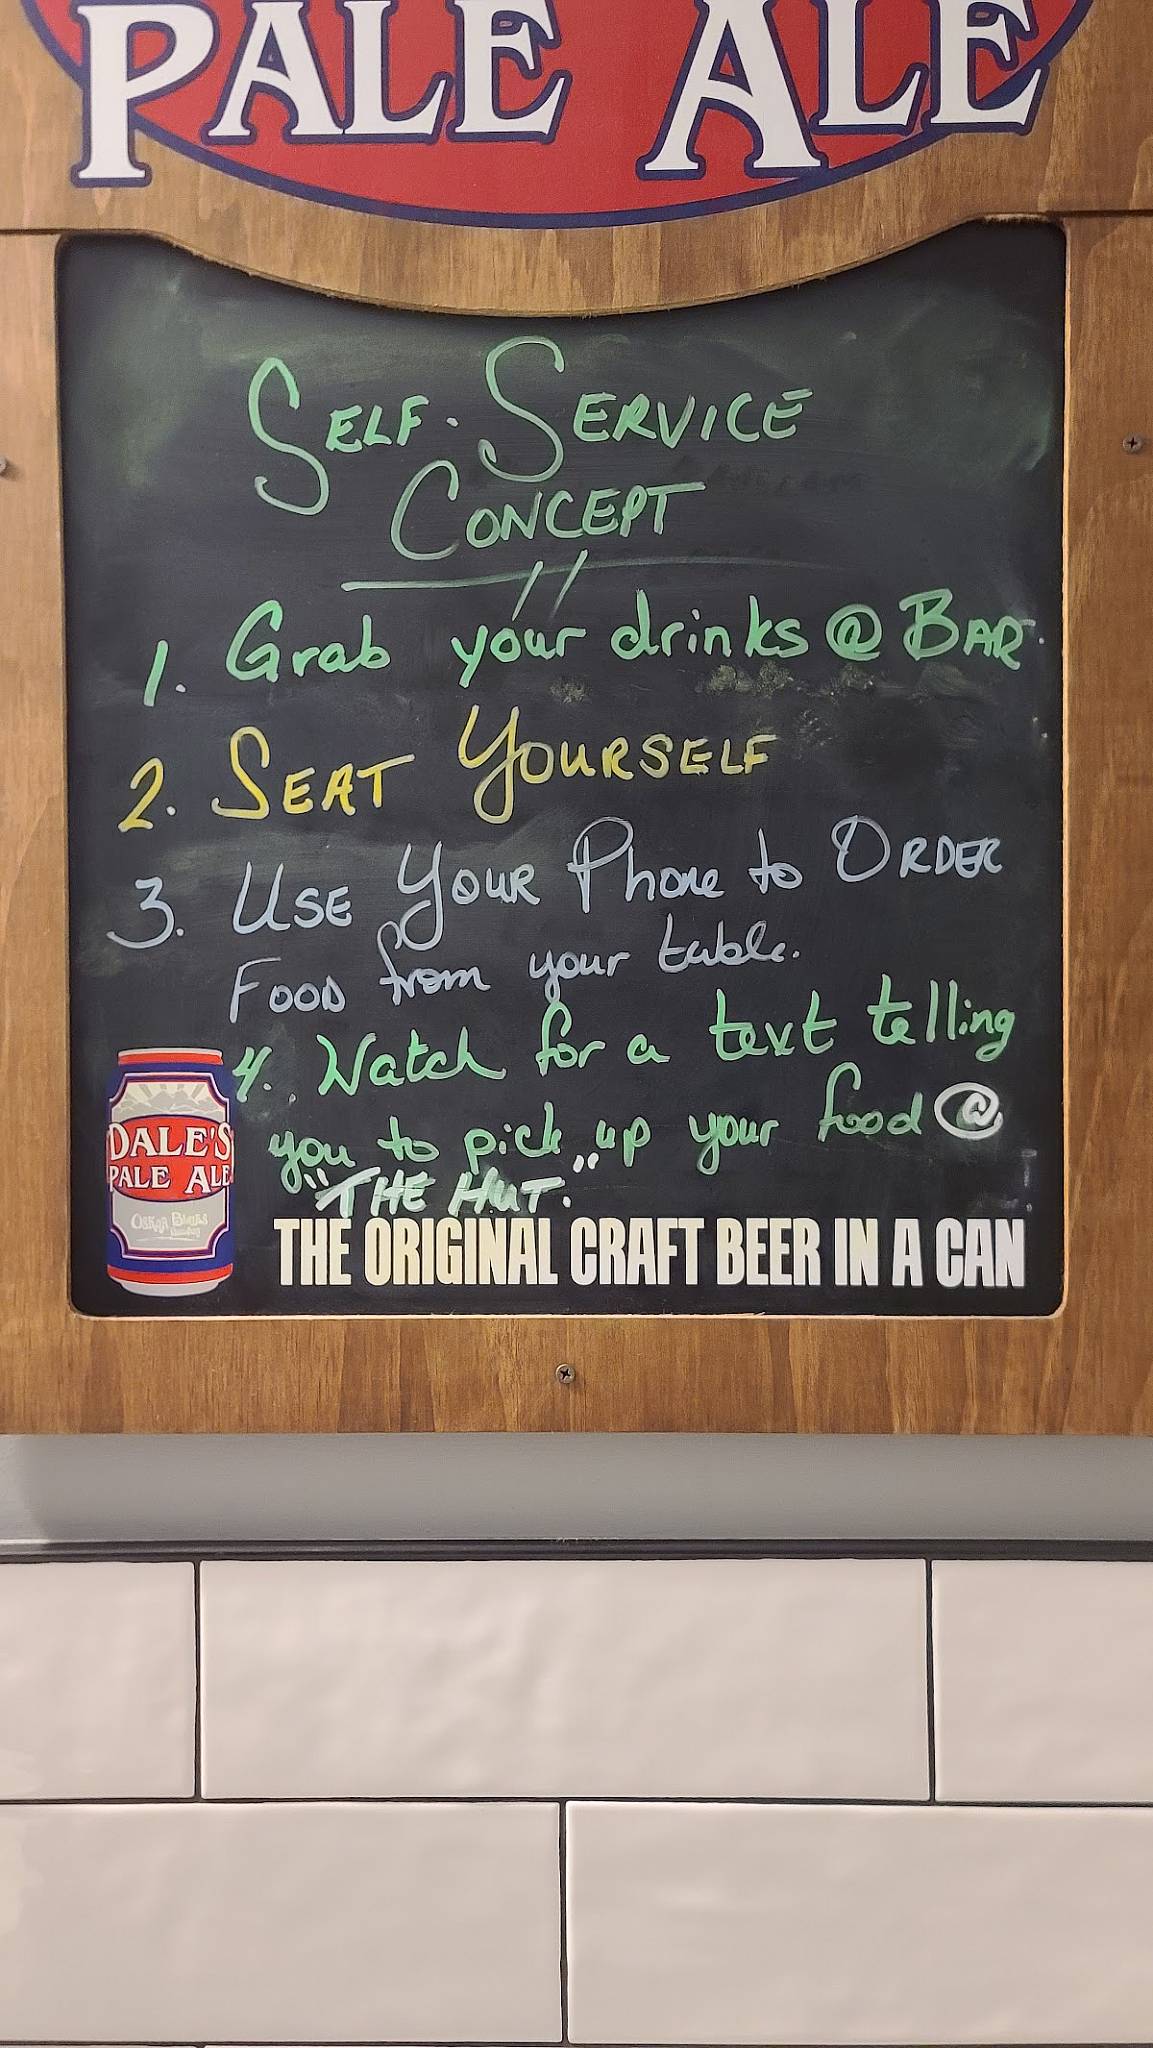 PALE ALE
SELF-SERVICE
CONCEPT
1. Grab your drinks @ BAR.
2. SEAT YOURSELF
3. USE YOUR Phone to ORDER
FOOD from your table.
4. Watch for a text telling
you to pick up your food @
"THE HUT."
DALE'S
PALE ALE
OSKAR BLUES
THE ORIGINAL CRAFT BEER IN A CAN